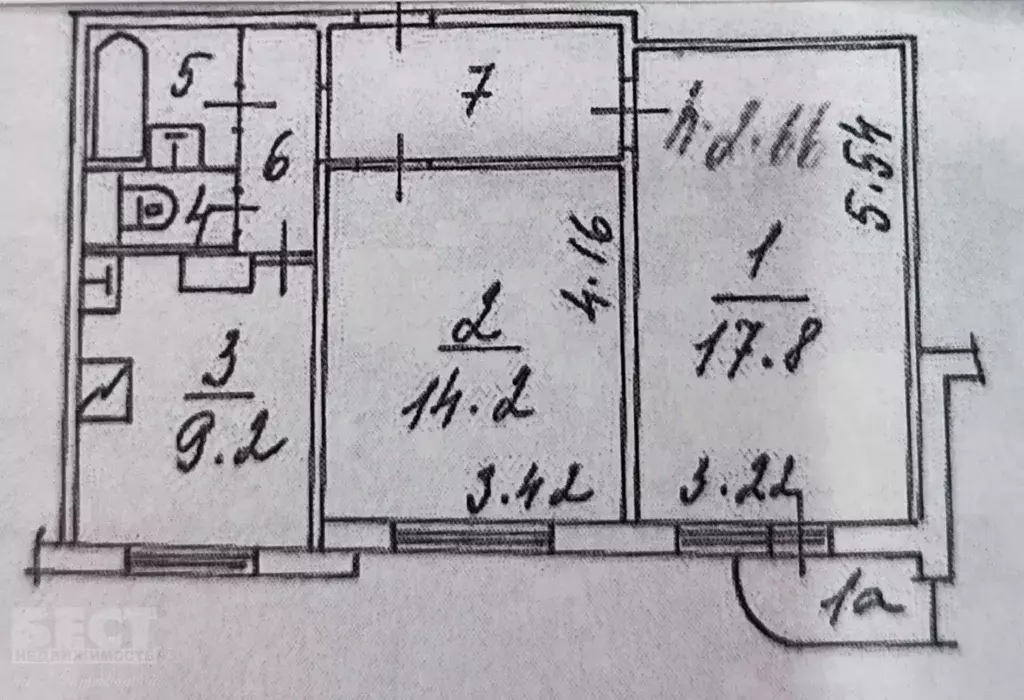 5
7
6
4
h-2.66
5.54
4.16
1
17.8
2
14.2
3
9.2
3.42
3.22
1а
БЕСТ
НЕДВИЖИМОСТЬ